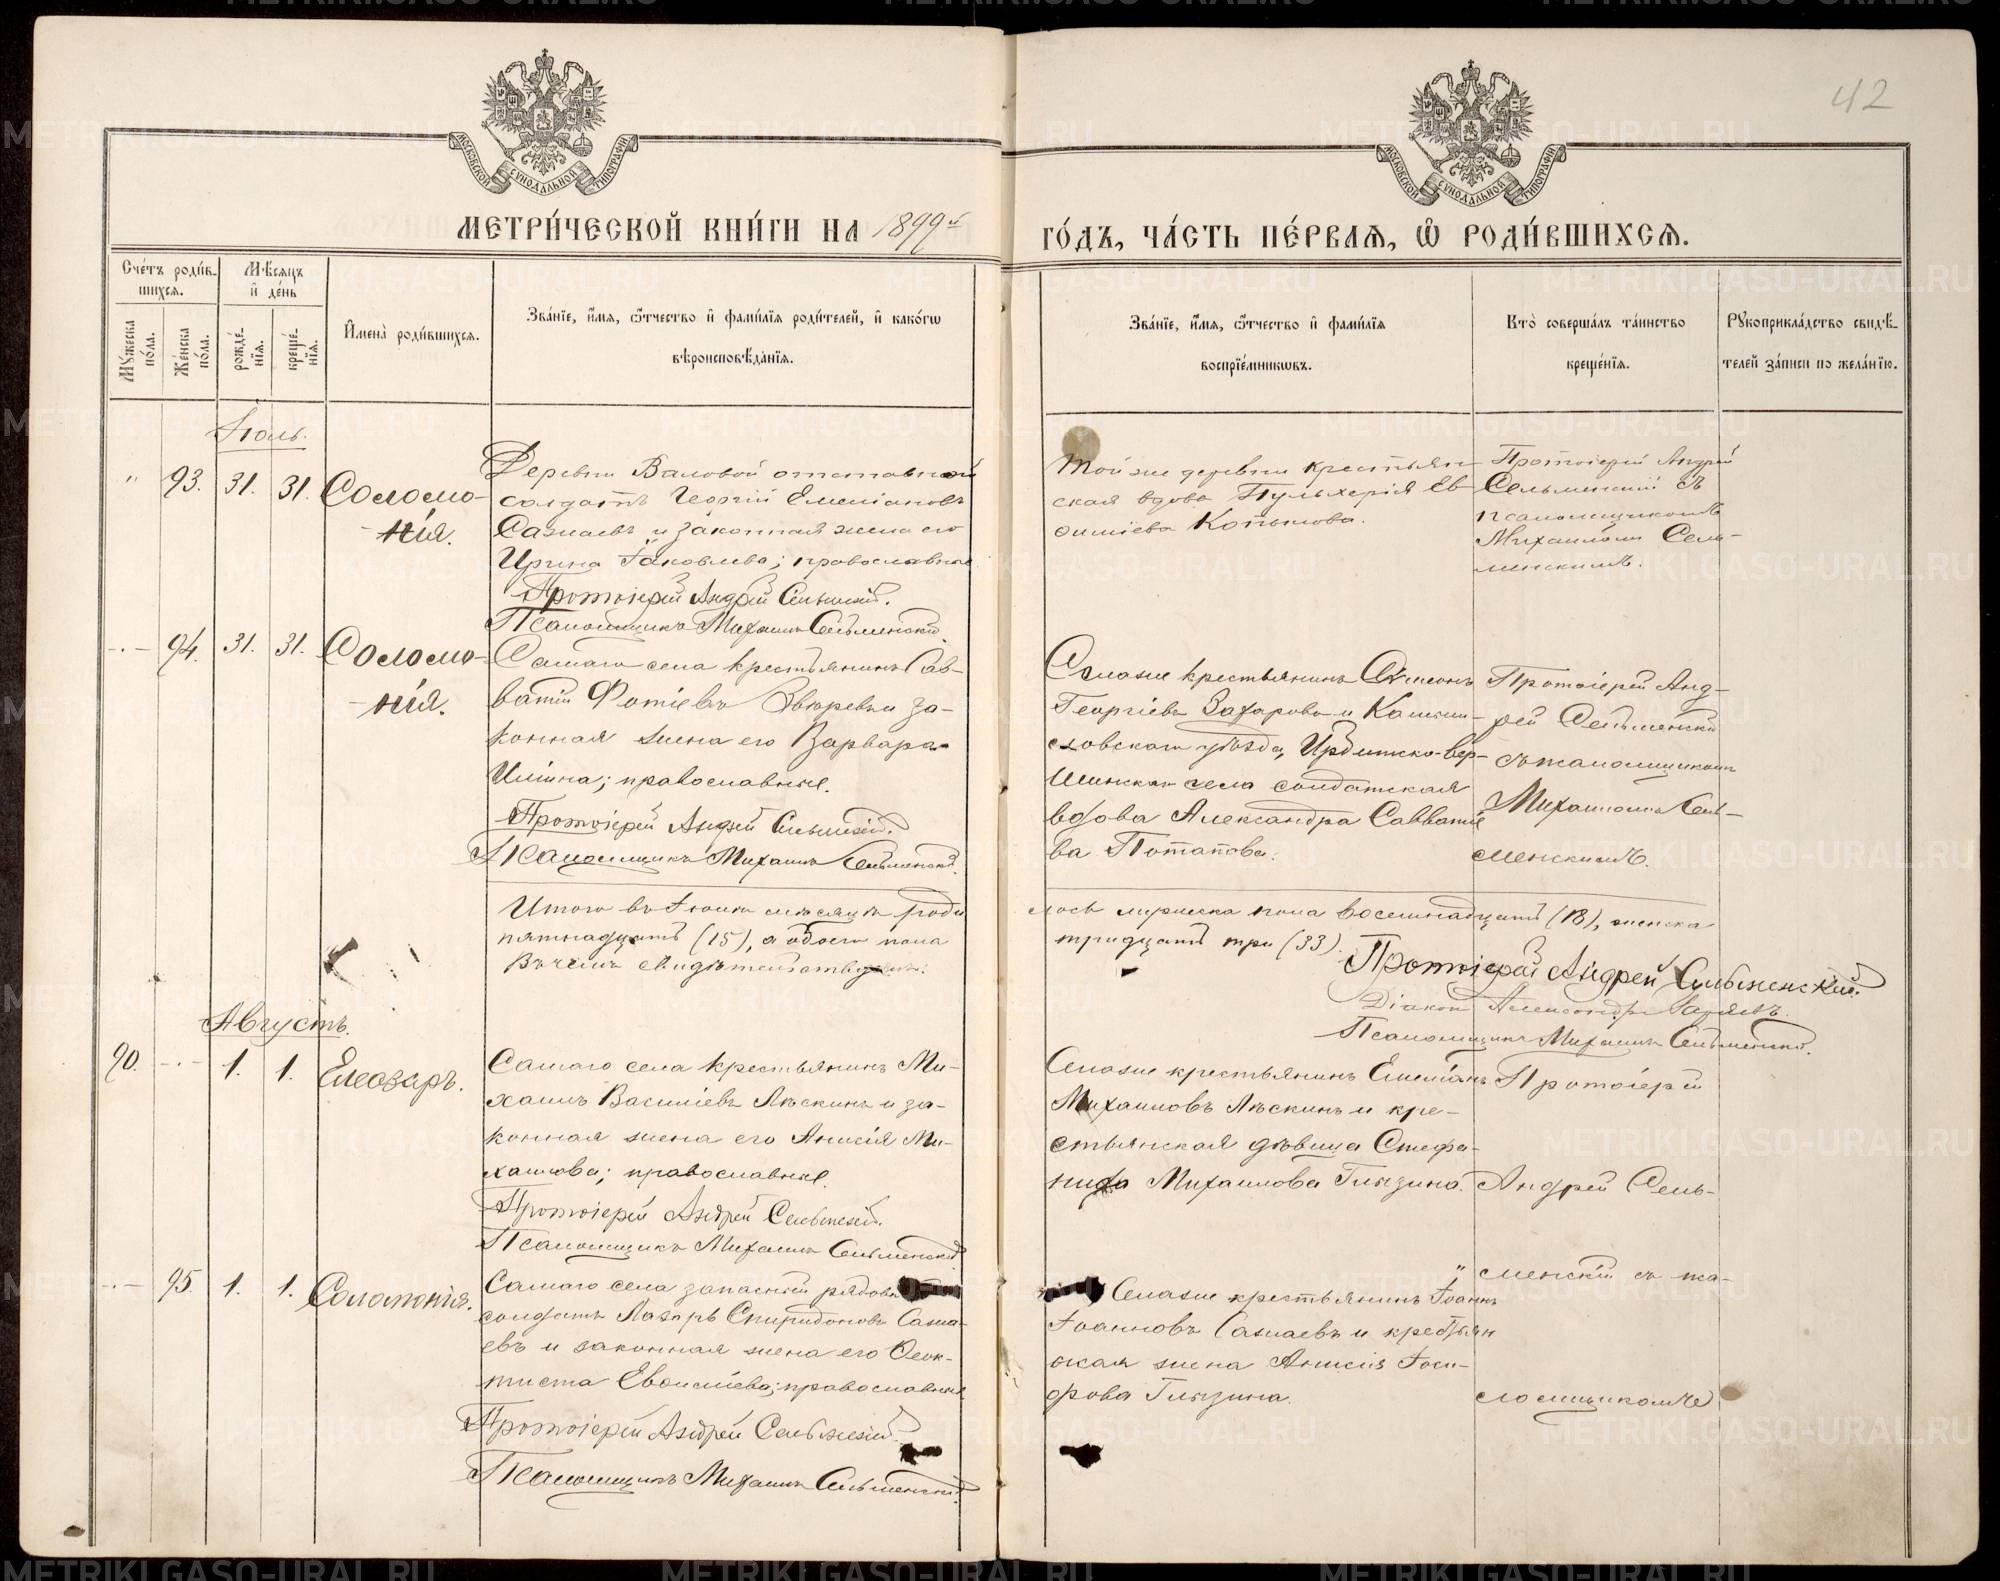 42
МОСКОВСКОЙ СѴНОДАЛЬНОЙ ТИПОГРАФІИ
МОСКОВСКОЙ СѴНОДАЛЬНОЙ ТИПОГРАФІИ
МЕТРИ́ЧЕСКОЙ КНИ́ГИ НА 1899й
ГО́ДЪ, ЧА́СТЬ ПЕ́РВАѦ, Ѿ РОДИ́ВШИХСѦ.
Сче́тъ роди́в-
шихсѧ.
Мꙋжеска по́ла.
Же́нска по́ла.
Мѣсѧцъ
и҆ де́нь
рожде́-
нїѧ.
креще́-
нїѧ.
И҆мена̀ роди́вшихсѧ.
Зва́нїе, и҆́мѧ, ѻ҆́тчество и҆ фами́лїѧ роди́телей, и҆ како́гѡ
вѣроисповѣ́данїѧ.
Зва́нїе, и҆́мѧ, ѻ҆́тчество и҆ фами́лїѧ
воспрїе́мникѡвъ.
Кто̀ соверша́лъ та́инство
креще́нїѧ.
Рꙋкоприкла́дство свидѣ́-
телей за́писи по жела́нїю.
Іюль.
" 93. 31. 31. Соломо-
нія.
Деревни Валовой отставной
солдатъ Георгій Емеліановъ
Сажаевъ и законная жена его
Ирина Іаковлева; православные
Протоіерей Андрей Сельменскій.
Псаломщикъ Михаилъ Сельменскій.
Той же деревни крестьян
ская вдова Пульхерія Ев
фиміева Копылова.
Протоіерей Андрей
Сельменскій съ
псаломщикомъ
Михаиломъ Сель-
менскимъ.
-·- 94. 31. 31. Соломо-
нія.
Самаго села крестьянинъ Сав-
ватій Фотіевъ Звыревъ и за-
конная жена его Варвара
Иліина; православные.
Протоіерей Андрей Сельменскій.
Псаломщикъ Михаилъ Сельменскій.
Села же крестьянинъ Симеонъ
Георгіевъ Захаровъ и Камыш-
ловскаго уѣзда, Ирбитско-Вер-
шинскаго села солдатская
вдова Александра Савватіе
ва Потапова.
Протоіерей Анд-
рей Сельменскій
съ псаломщикомъ
Михаиломъ Сель-
менскимъ.
Итого въ Іюлѣ мѣсяцѣ роди
лось мужеска пола восемнадцать (18), женска
пятнадцать (15), а обоего пола
тридцать три (33).
Въ чемъ свидѣтельствуемъ:
Протоіерей Андрей Сельменскій.
Діаконъ Александръ
Псаломщикъ Михаилъ Сельменскій.
Августъ.
90. -·- 1. 1. Елеазаръ.
Самаго села крестьянинъ Ми-
хаилъ Василіевъ Лѣскинъ и за-
конная жена его Анисія Ми-
хаилова; православные.
Протоіерей Андрей Сельменскій.
Псаломщикъ Михаилъ Сельменскій
Села же крестьянинъ Емеліанъ
Михаиловъ Лѣскинъ и кре-
стьянская дѣвица Стефа-
нида Михаилова Глызина.
Протоіерей
Андрей Сель-
-·- 95. 1. 1. Соломонія.
Самаго села запасный рядовой
солдатъ Лазарь Спиридоновъ Сажа-
евъ и законная жена его Ѳеок-
тиста Евѳиміева; православные
Протоіерей Андрей Сельменскій.
Псаломщикъ Михаилъ Сельменскій.
Села же крестьянинъ Іоаннъ
Іоанновъ Сажаевъ и крестьян
ская жена Анисія Іоси-
фова Глызина.
" менскій съ пса-
ломщикомъ
METRIKI.GASO-URAL.RU